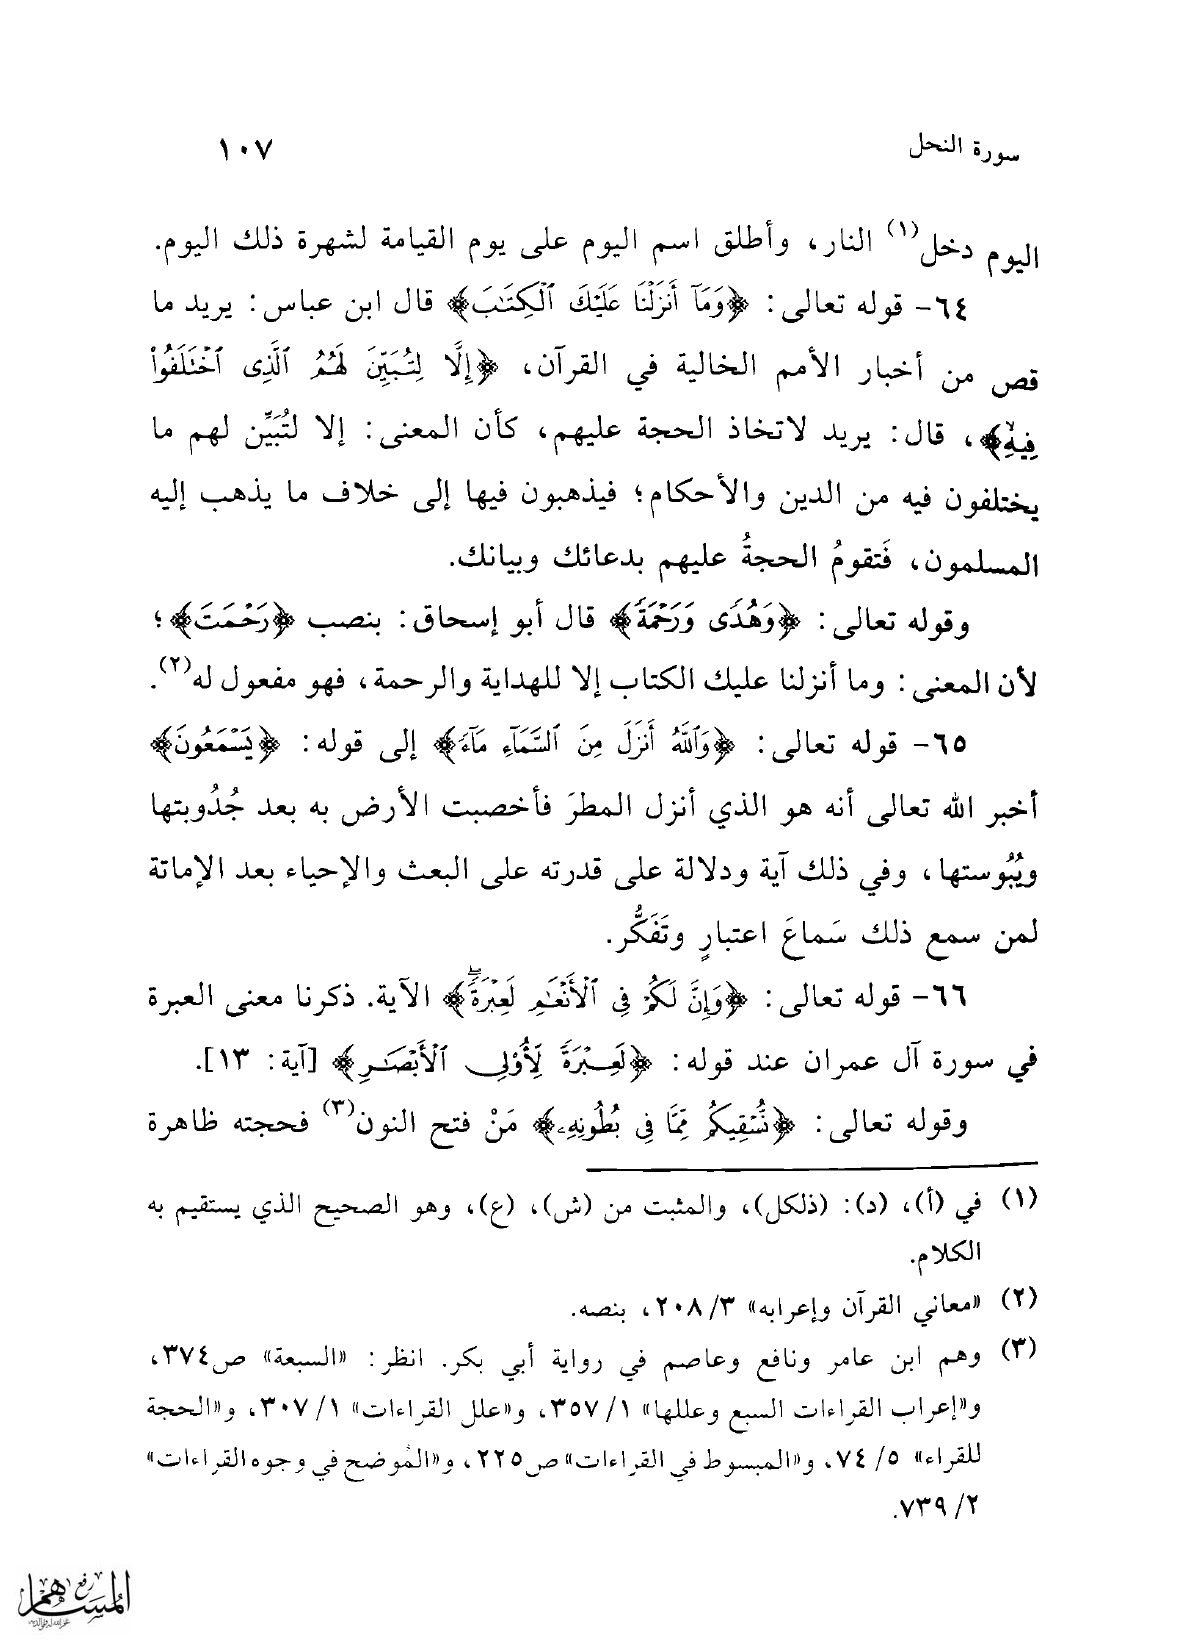 سورة النحل ١٠٧
اليوم دخل(١) النار، وأطلق اسم اليوم على يوم القيامة لشهرة ذلك اليوم.
٦٤- قوله تعالى: ﴿وَمَآ أَنزَلْنَا عَلَيْكَ ٱلْكِتَٰبَ﴾ قال ابن عباس: يريد ما
قص من أخبار الأمم الخالية في القرآن، ﴿إِلَّا لِتُبَيِّنَ لَهُمُ ٱلَّذِى ٱخْتَلَفُوا۟
فِيهِ﴾، قال: يريد لاتخاذ الحجة عليهم، كأن المعنى: إلا لتُبَيِّن لهم ما
يختلفون فيه من الدين والأحكام؛ فيذهبون فيها إلى خلاف ما يذهب إليه
المسلمون، فَتقومُ الحجةُ عليهم بدعائك وبيانك.
وقوله تعالى: ﴿وَهُدًى وَرَحْمَةً﴾ قال أبو إسحاق: بنصب ﴿رَحْمَتَ﴾؛
لأن المعنى: وما أنزلنا عليك الكتاب إلا للهداية والرحمة، فهو مفعول له(٢).
٦٥- قوله تعالى: ﴿وَٱللَّهُ أَنزَلَ مِنَ ٱلسَّمَآءِ مَآءً﴾ إلى قوله: ﴿يَسْمَعُونَ﴾
أخبر الله تعالى أنه هو الذي أنزل المطرَ فأخصبت الأرض به بعد جُدُوبتها
ويُبُوستها، وفي ذلك آية ودلالة على قدرته على البعث والإحياء بعد الإماتة
لمن سمع ذلك سَماعَ اعتبارٍ وتَفَكُّر.
٦٦- قوله تعالى: ﴿وَإِنَّ لَكُمْ فِى ٱلْأَنْعَٰمِ لَعِبْرَةًۖ﴾ الآية. ذكرنا معنى العبرة
في سورة آل عمران عند قوله: ﴿لَعِبْرَةً لِّأُو۟لِى ٱلْأَبْصَٰرِ﴾ [آية: ١٣].
وقوله تعالى: ﴿نُّسْقِيكُم مِّمَّا فِى بُطُونِهِۦ﴾ مَنْ فتح النون(٣) فحجته ظاهرة
(١) في (أ)، (د): (ذلكل)، والمثبت من (ش)، (ع)، وهو الصحيح الذي يستقيم به
الكلام.
(٢) «معاني القرآن وإعرابه» ٣/ ٢٠٨، بنصه.
(٣) وهم ابن عامر ونافع وعاصم في رواية أبي بكر. انظر: «السبعة» ص٣٧٤،
و«إعراب القراءات السبع وعللها» ١/ ٣٥٧، و«علل القراءات» ١/ ٣٠٧، و«الحجة
للقراء» ٥/ ٧٤، و«المبسوط في القراءات» ص٢٢٥، و«المُوضح في وجوه القراءات»
٢/ ٧٣٩.